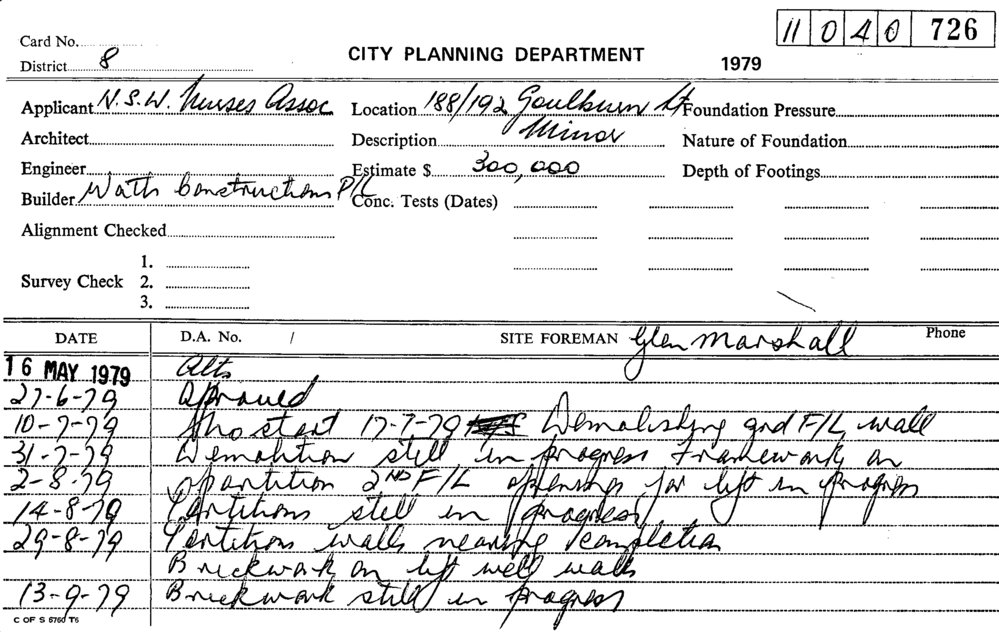 11 0 4 0 726
Card No.
District 8
CITY PLANNING DEPARTMENT
1979
Applicant N.S.W. Nurses Assoc Location 188/192 Goulburn St Foundation Pressure
Architect Description Minor Nature of Foundation
Engineer Estimate $ 300,000 Depth of Footings
Builder Wath Constructions P/L Conc. Tests (Dates)
Alignment Checked
1.
Survey Check 2.
3.
DATE D.A. No. / SITE FOREMAN Glen Marshall Phone
16 MAY 1979 Alts
27-6-79 Approved
10-7-79 No start 17-7-79 Demolishing grd F/L wall
31-7-79 Demolition still in progress Framework on
2-8-79 partition 2ND F/L openings for lift in progress
14-8-79 Partitions still in progress
29-8-79 Partitions walls nearing completion
Brickwork on lift well walls
13-9-79 Brickwork still in progress
C OF S 6760 T6